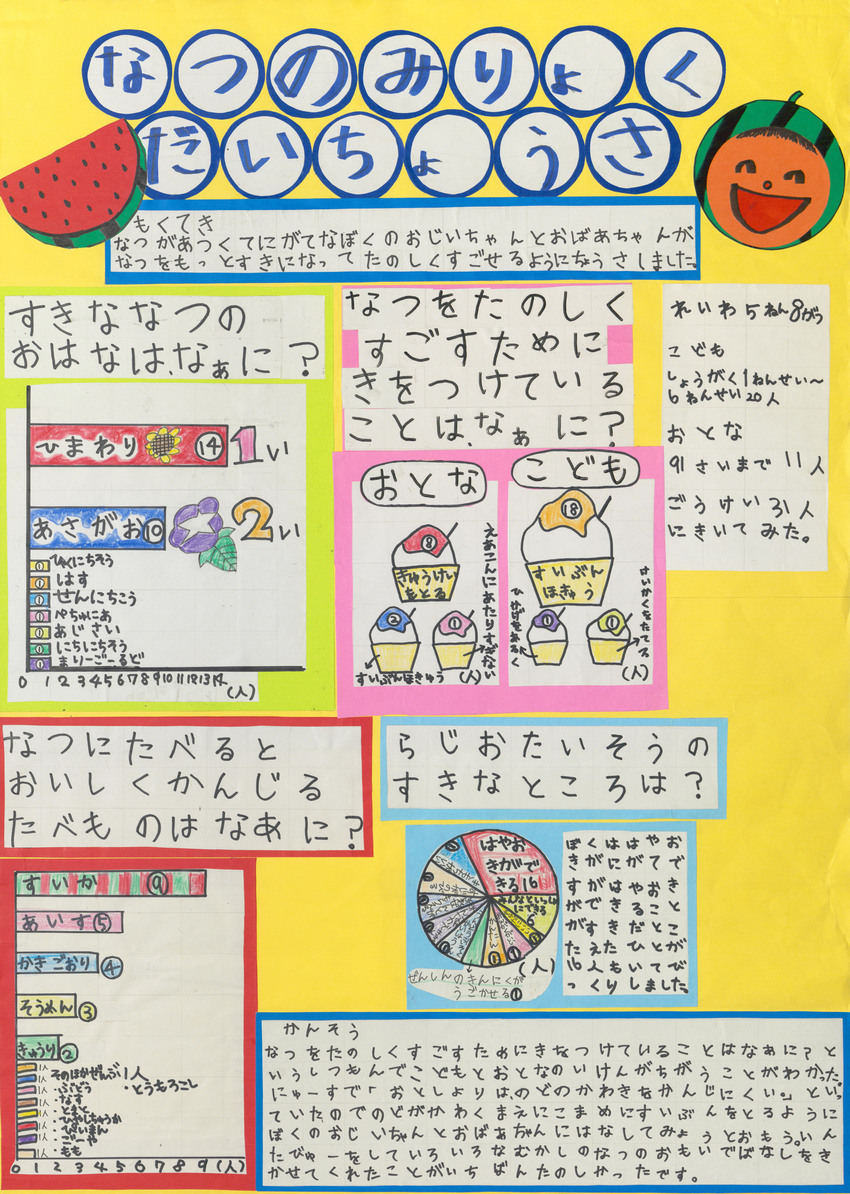 なつのみりょく
だいちょうさ
もくてき
なつがあつくてにがてなぼくのおじいちゃんとおばあちゃんが
なつをもっとすきになってたのしくすごせるようにちょうさしました。
すきななつの
おはなは、なぁに？
ひまわり 14 1い
あさがお 10 2い
1 ひゃくにちそう
1 はす
1 せんにちこう
1 ぺちゅにあ
1 あじさい
1 にちにちそう
1 まりーごーるど
0 1 2 3 4 5 6 7 8 9 10 11 12 13 14
(人)
なつをたのしく
すごすために
きをつけている
ことは、なぁに？
おとな
8
きゅうけい
をとる
2
すいぶんほきゅう
1
えあこんにあたりすぎない
(人)
こども
18
すいぶん
ほきゅう
1
ひかげをあるく
1
けいかくをたてる
(人)
れいわ5ねん8がつ
こども
しょうがく1ねんせい〜
6ねんせい20人
おとな
91さいまで11人
ごうけい31人
にきいてみた。
なつにたべると
おいしくかんじる
たべものはなあに？
すいか 9
あいす 5
かきごおり 4
そうめん 3
きゅうり 2
1人
そのほかぜんぶ1人
・とうもろこし
・ぶどう
・なす
・とまと
・ひやしちゅうか
・ぴいまん
・ごーや
・もも
0 1 2 3 4 5 6 7 8 9 (人)
らじおたいそうの
すきなところは？
はやお
きがで
きる16
みんなといっしょ
にできる
6
(人)
ぜんしんのきんにくが
うごかせる1
ぼくははやお
きがにがてで
すがはやおき
ができること
がすきだとこ
たえたひとが
16人もいてび
っくりしました。
かんそう
なつをたのしくすごすためにきをつけていることはなあに？と
いうしつもんでこどもとおとなのいけんがちがうことがわかった。
にゅーすで「おとしよりは、のどのかわきをかんじにくい。」といっ
ていたのでのどがかわくまえにこまめにすいぶんをとるように
ぼくのおじいちゃんとおばあちゃんにはなしてみようとおもう。いん
たびゅーをしていろいろなむかしのなつのおもいでばなしをき
かせてくれたことがいちばんたのしかったです。